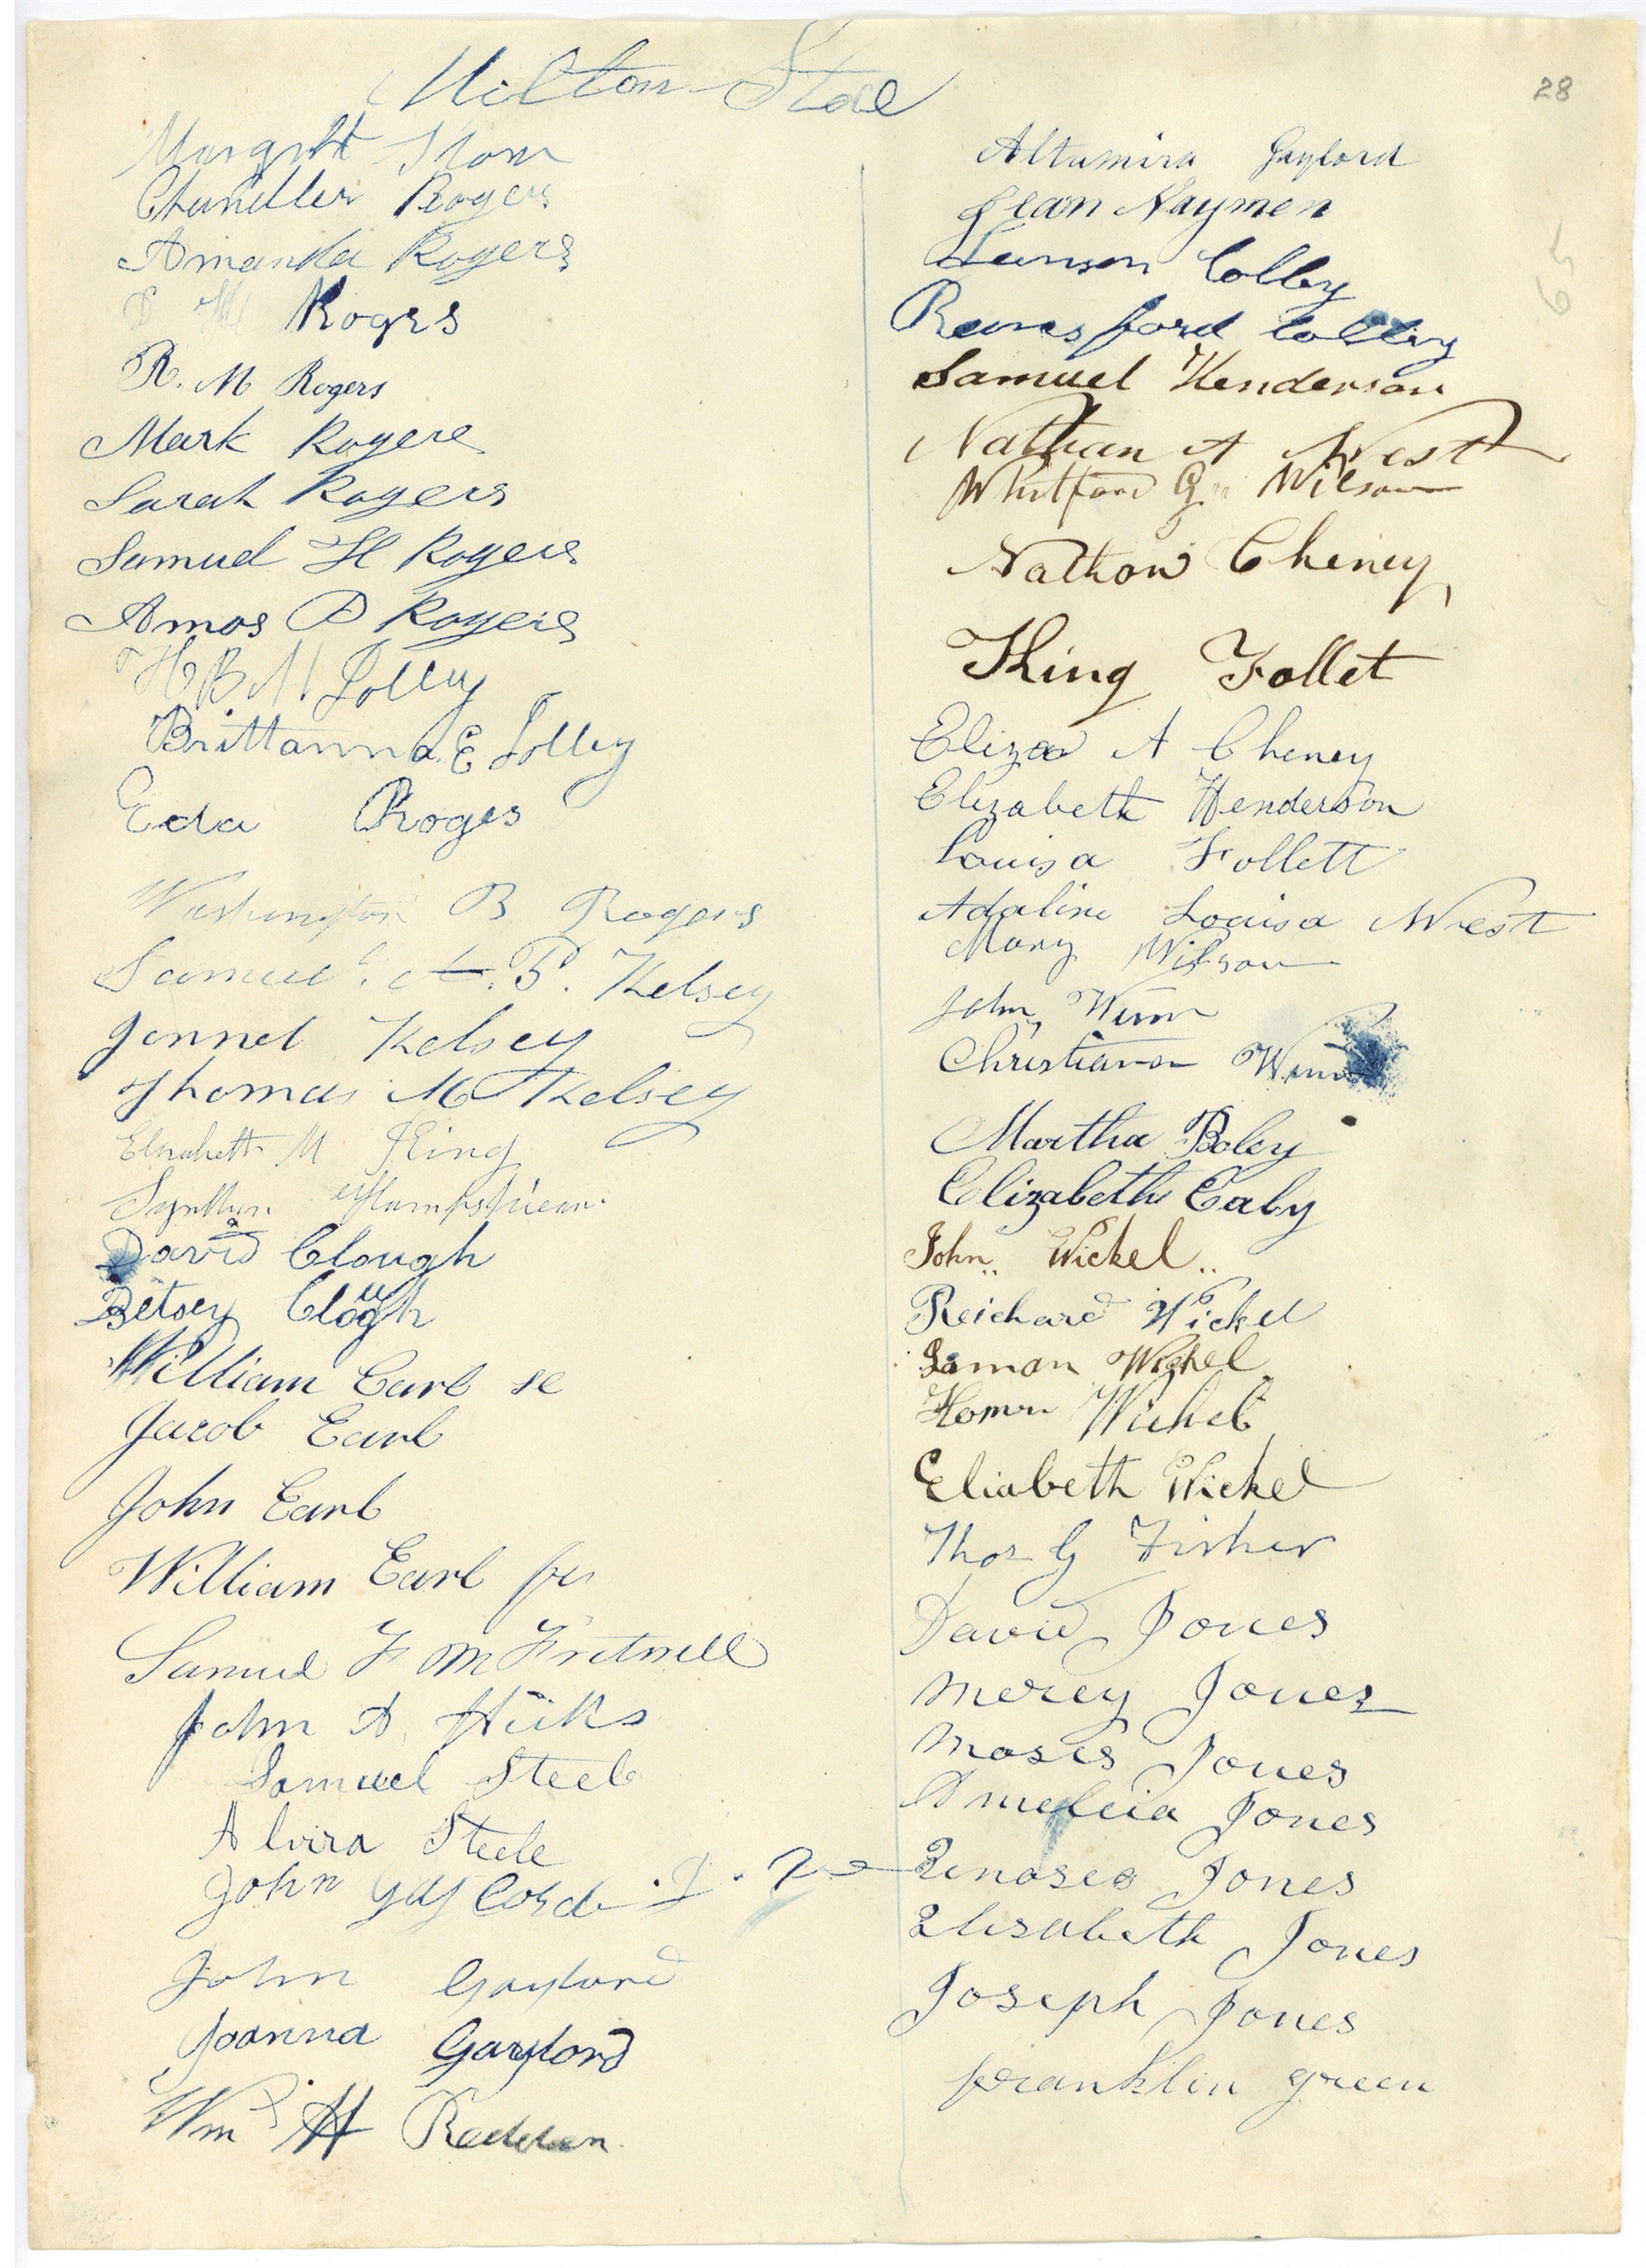 Milton Stoe
28
Margrt Stom
Chandler Rogers
Amanda Rogers
D H Rogrs
R. M Rogers
Mark Rogers
Sarah Rogers
Samuel H Rogers
Amos P Rogers
H B M Jolley
Brittanna E Jolley
Eda Roges
Washington B Rogers
Samuel. A. P. Kelsey
Jennet Kelsey
Thomas M Kelsey
Elizabeth M King
David Clough
Betsey Clough
William Earl se
Jacob Earl
John Earl
William Earl jr
Samuel F M Fretwell
John A Hicks
Samuel Steele
Alvira Steele
John Gaylord
John Gaylord
Joanna Gaylord
Wm H Redden
Altumira Gaylord
Jean Naymen
Lanson Colby
Ransford Colby
65
Samuel Henderson
Nathan A West
Whitford G. Wilson
Nathan Cheney
King Follet
Eliza A Cheney
Elizabeth Henderson
Louisa Follett
Adaline Louisa West
Mary Wilson
John Winn
Christiana Winn
Martha Boley
Elizabeth Eaby
John Wickel
Reichard Wickel
Saman Wighel
Homer Wichel
Eliabeth Wickel
Thos G Fisher
David Jones
Mercy Jones
Moses Jones
Ameliia Jones
Jones
Elisabeth Jones
Joseph Jones
franklin green